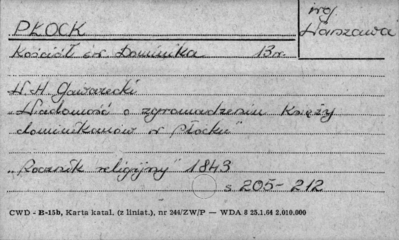 PŁOCK
woj
Warszawa
Kościół św. Dominika 13 w.
W. H. Gawarecki
"Wiadomość o zgromadzeniu Księży
dominikanów w Płocku"
"Rocznik religijny" 1843
s 205-212
CWD - B-15b, Karta katal. (z liniat.), nr 244/ZW/P — WDA 6 25.1.64 2.010.000